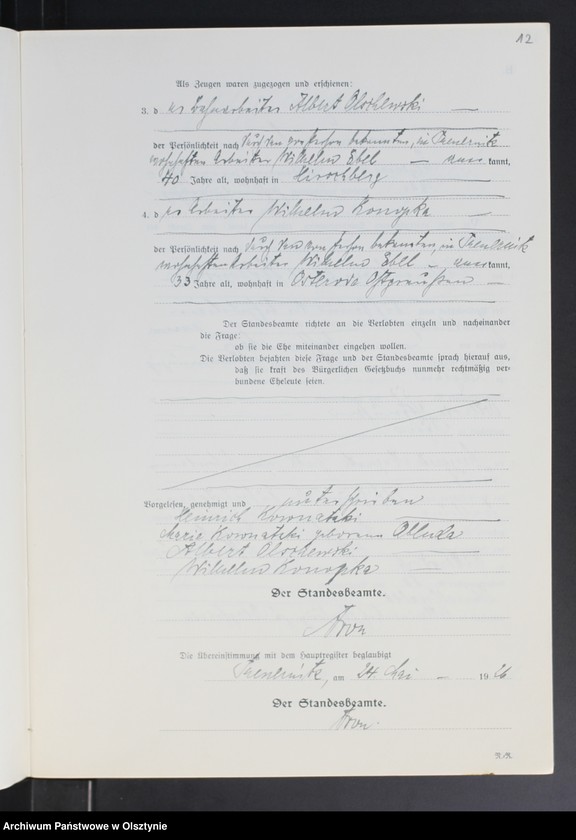 12
Als Zeugen waren zugezogen und erschienen:
3. der Bahnarbeiter Albert Olschewski
der Persönlichkeit nach durch den von Person bekannten, in
wohnhaften Arbeiter Wilhelm Ebel – anerkannt,
40 Jahre alt, wohnhaft in Hirschberg
4. der Arbeiter Wilhelm Konopka
der Persönlichkeit nach durch den von Person bekannten, in
wohnhaften Arbeiter Wilhelm Ebel – anerkannt,
33 Jahre alt, wohnhaft in Osterode Ostpreußen –
Der Standesbeamte richtete an die Verlobten einzeln und nacheinander
die Frage:
ob sie die Ehe miteinander eingehen wollen.
Die Verlobten bejahten diese Frage und der Standesbeamte sprach hierauf aus,
daß sie kraft des Bürgerlichen Gesetzbuchs nunmehr rechtmäßig ver-
bundene Eheleute seien.
Vorgelesen, genehmigt und unterschrieben
Heinrich
geborene
Albert Olschewski
Wilhelm Konopka
Der Standesbeamte.
Die Übereinstimmung mit dem Hauptregister beglaubigt
am 24. Mai – 19
Der Standesbeamte.
Archiwum Państwowe w Olsztynie